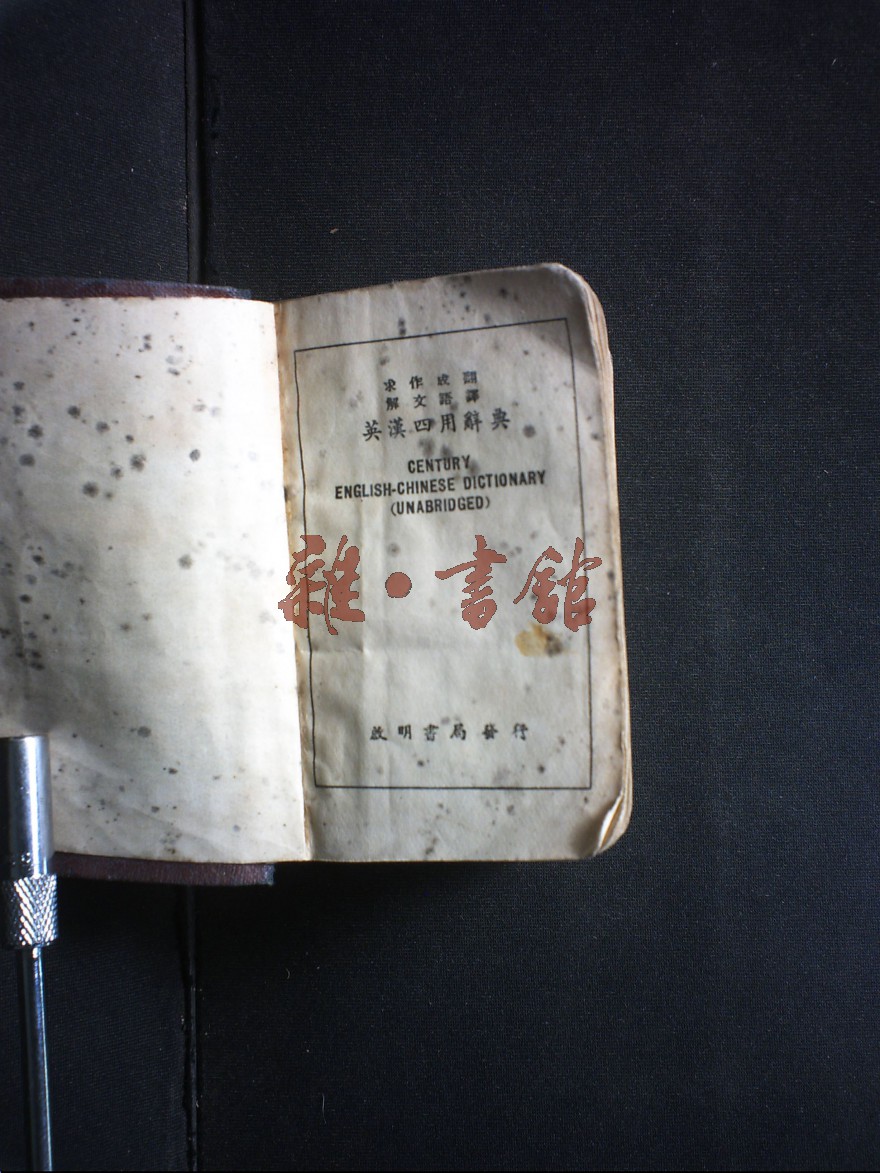 求作成翻
解文語譯
英漢四用辭典
CENTURY
ENGLISH-CHINESE DICTIONARY
(UNABRIDGED)
雜·書館
啟明書局發行